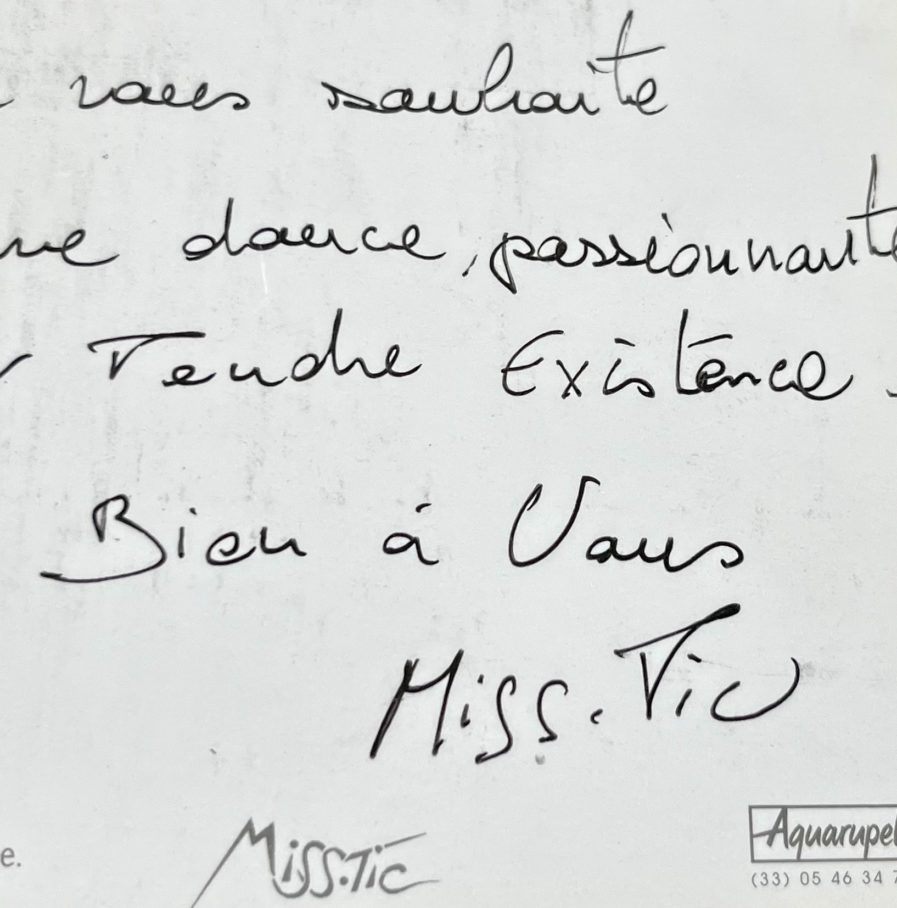 vous souhaite
douce, passionnante
Tendre Existence.
Bien à Vous
Miss.Tic
e.
Miss.Tic
Aquarupel
(33) 05 46 34 7